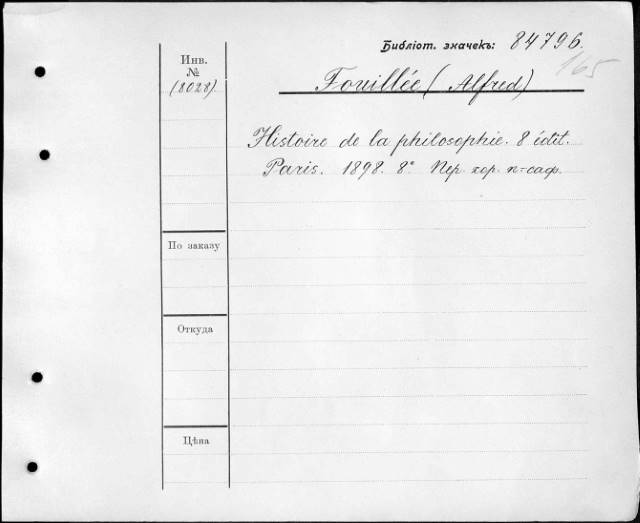 Библіот. значекъ: 84796.
165
Инв.
№
(8028).
Fouillée (Alfred)
Histoire de la philosophie. 8 édit.
Paris. 1898. 8° Пер. кор. п-саф.
По заказу
Откуда
Цѣна